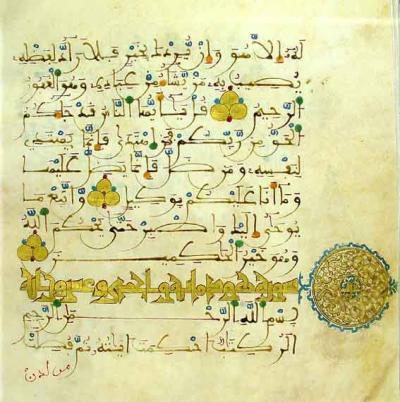 له إلا هو وإن يردك بخير فلا راد لفضله
يصيب به من يشاء من عباده وهو الغفور
الرحيم قل يأيها الناس قد جاءكم
الحق من ربكم فمن اهتدى فإنما يهتدي
لنفسه ومن ضل فإنما يضل عليها
وما أنا عليكم بوكيل واتبع ما
يوحى إليك واصبر حتى يحكم الله
وهو خير الحكمين
سورة هود مائة وإحدى وعشرون آية
بسم الله الرحمن الرحيم
الر كتب أحكمت آيته ثم فصلت
من لدن